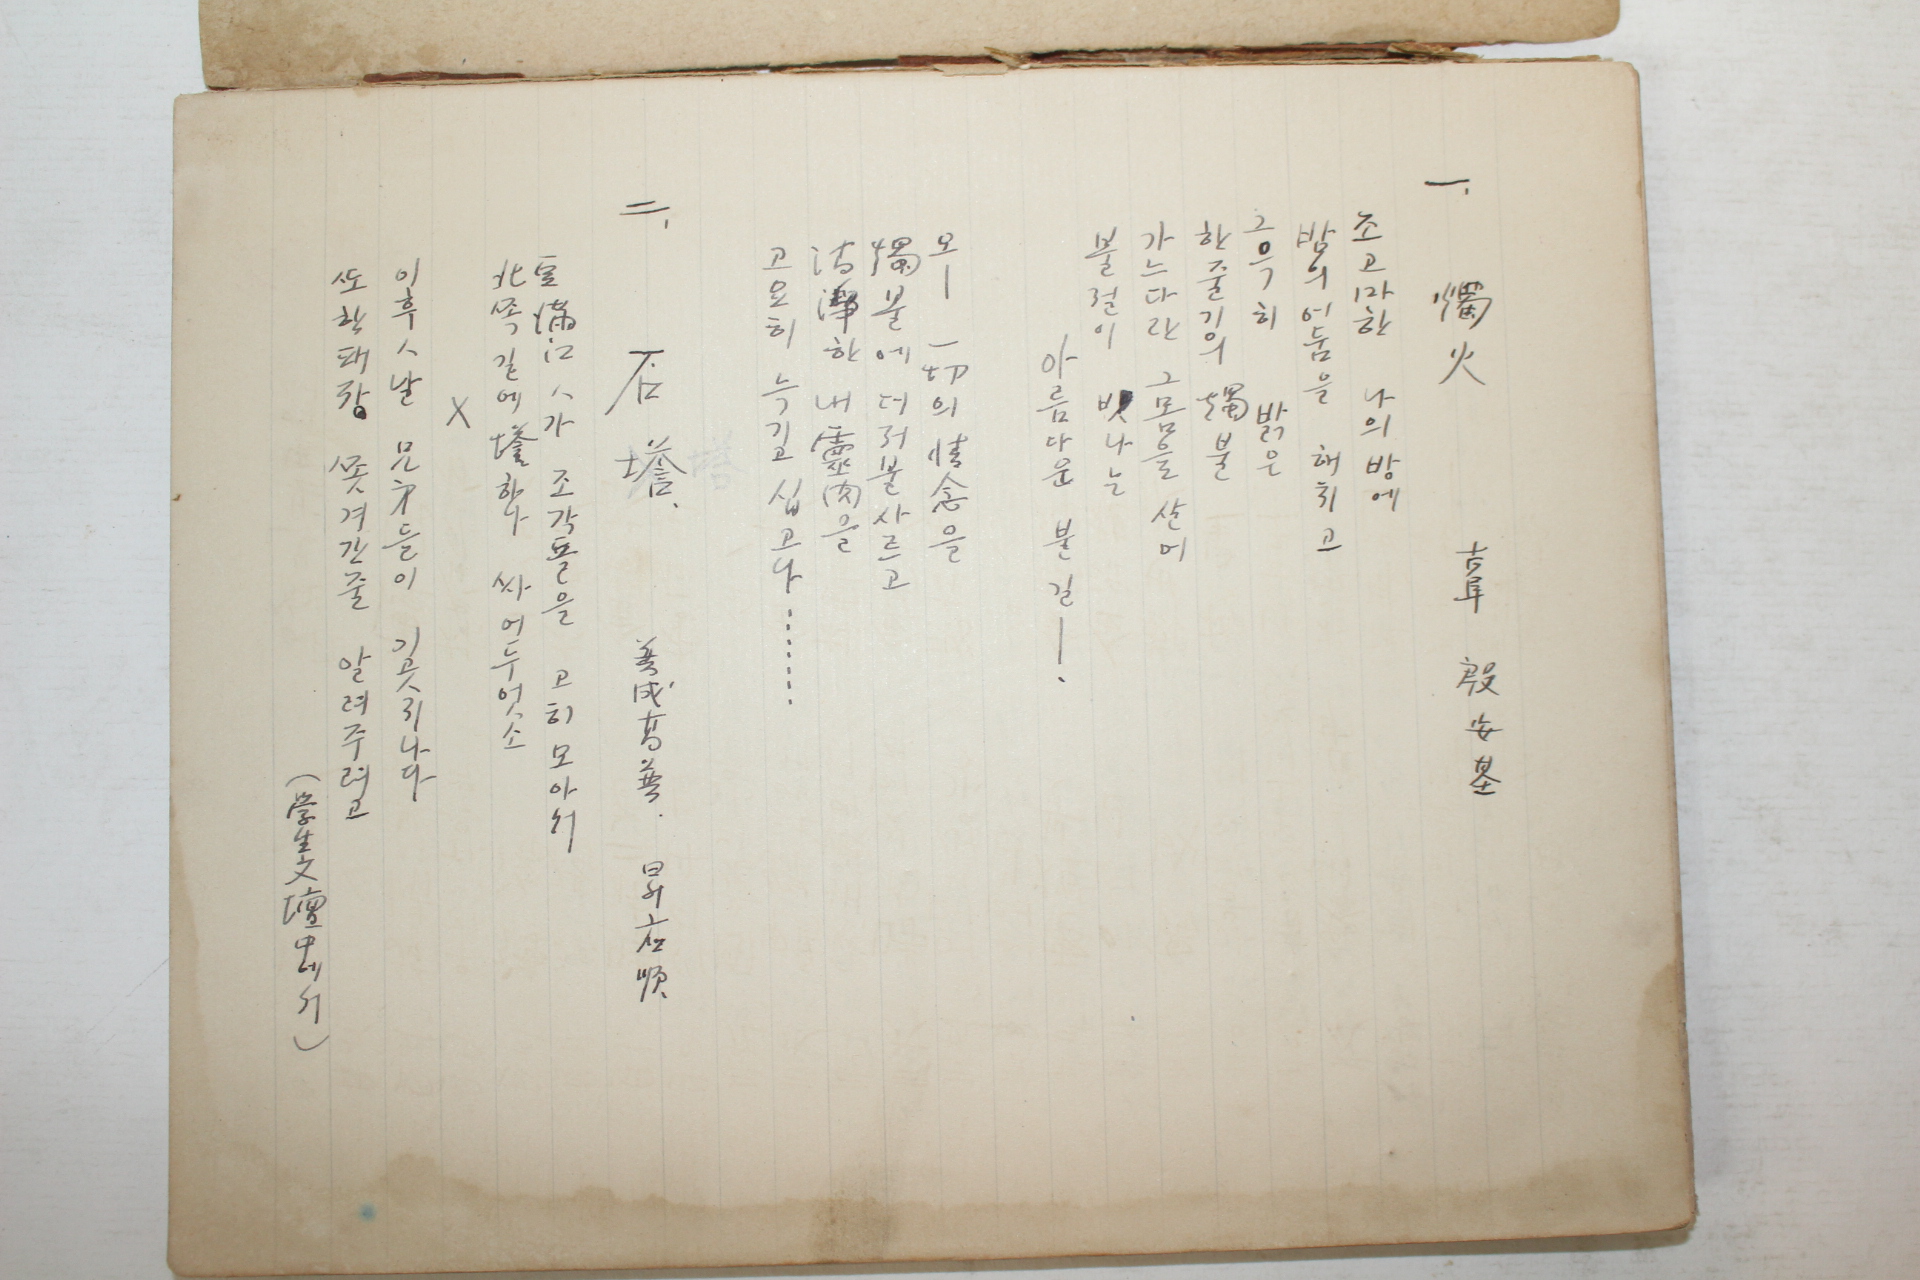 一. 燭火 古阜 殷安基
조고마한 나의방에
밤의어둠을 해치고
그윽히 밝은
한줄기의 燭불
가느다란 그몸을 살며
불결이 빗나는
아름다운 불길—.
오— 一切의情念을
燭불에더러불사르고
淸淨한 내靈肉을
고요히 늑기고십고나……
二. 石塔.
豆滿江ㅅ가 조각돌을 고히모아서
北쪽길에塔하나 싸어두엇소
X
이후ㅅ날 兄才들이 기곳지나다
또한패장 쫏겨간줄 알려주려고
(學生文壇中에서)